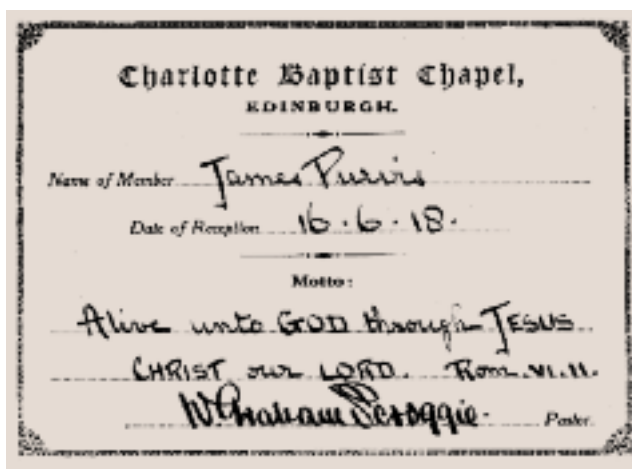 Charlotte Baptist Chapel,
EDINBURGH.
Name of Member James Purvis
Date of Reception 16.6.18.
Motto:
Alive unto GOD through JESUS
CHRIST our LORD. Rom. VI. 11.
W. Graham Scroggie. Pastor.